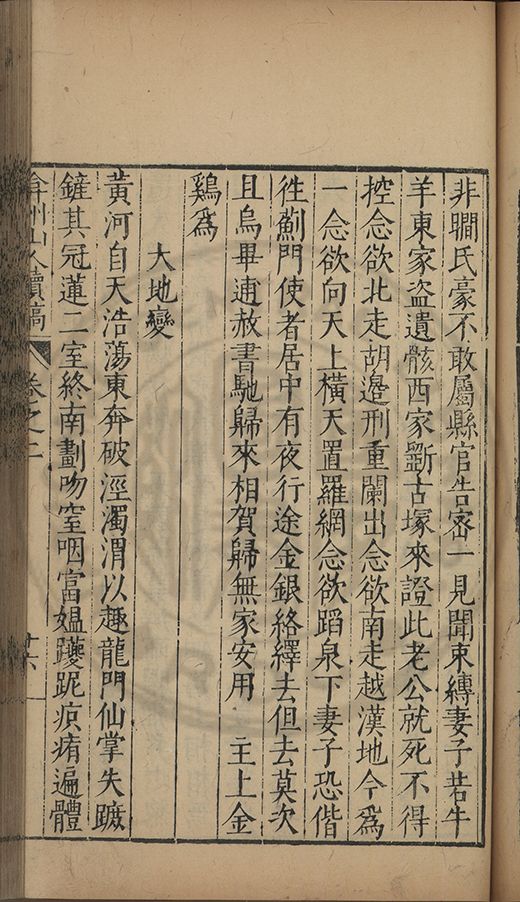 非瞷氏豪不敢屬縣官告密一見聞束縛妻子若牛
羊東家盜遺骸西家斸古塚來證此老公就死不得
控念欲北走胡邉刑重闌出念欲南走越漢地今爲
一念欲向天上橫天置羅網念欲蹈泉下妻子恐偕
徃薊門使者居中有夜行途金銀絡繹去但去莫次
且烏畢逋赦書馳歸來相賀歸無家安用 主上金
鷄爲
大地變
黃河自天浩蕩東奔破涇濁渭以趣龍門仙掌失蹠
鏟其冠蓮二室終南劃吻窒咽富媼躨跜痕痏遍體
弇州山人續稿 卷之二 廿六